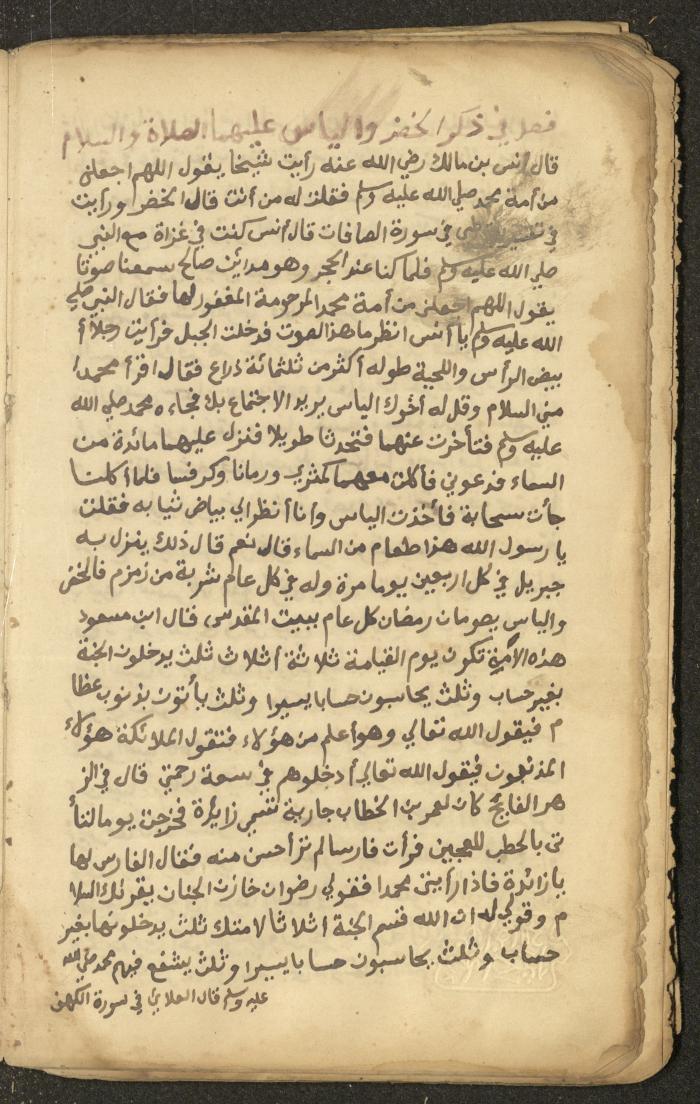 فصل في ذكر الخضر والياس عليهما الصلاة والسلام
قال أنس بن مالك رضي الله عنه رأيت شيخا يقول اللهم اجعلني
من أمة محمد صلي الله عليه وسلم فقلت له من أنت قال الخضر ورأيت
في تفسير في سورة الصافات قال أنس كنت في غزاة مع النبي
صلي الله عليه وسلم فلما كنا عند الحجر وهو مدائن صالح سمعنا صوتا
يقول اللهم اجعلني من أمة محمد المرحومة المغفور لها فقال النبي صلي
الله عليه وسلم يا أنس انظر ما هذا الصوت فدخلت الجبل فرأيت رجلا أ
بيض الرأس واللحية طوله أكثر من ثلثمائة ذراع فقال اقرأ محمدا
مني السلام وقل له أخوك الياس يريد الاجتماع بك فجاءه محمد صلي الله
عليه وسلم فتأخرت عنهما فتحدثا طويلا فنزل عليهما مائدة من
السماء فدعوني فأكلت معهما كمثري ورمانا وكرفسا فلما أكلت
جأت سحابة فأخذت الياس وأنا أنظر الي بياض ثيابه فقلت
يا رسول الله هذا طعام من السماء قال نعم قال ذلك ينزل به
جبريل في كل اربعين يوما مرة وله في كل عام شربة من زمزم فالخضر
والياس يصومان رمضان كل عام ببيت المقدس قال ابن مسعود
هذه الأمة تكون يوم القيامة ثلاثة أثلاث ثلث يدخلون الجنة
بغير حساب وثلث يحاسبون حسابا يسيرا وثلث يأتون بذنوب عظا
م فيقول الله تعالي وهو أعلم من هؤلاء فتقول الملائكة هؤلاء
المذنبون فيقول الله تعالي أدخلوهم في سعة رحمتي قال في الز
هر الفايح كان لعمر بن الخطاب جارية تسمي زايدة فخرجت يوما لتأ
تي بالحطب للعجين فرأت فارسا لم تر أحسن منه فقال الفارس لها
يا زائدة فاذا رأيتي محمدا فقولي رضوان خازن الجنان يقرئك السلا
م وقولي له ان الله قسم الجنة اثلاثا لامتك ثلث يدخلونها بغير
حساب وثلث يحاسبون حسابا يسيرا وثلث يشفع فيهم محمد صلي الله
عليه وسلم قال العلائي في سورة الكهف